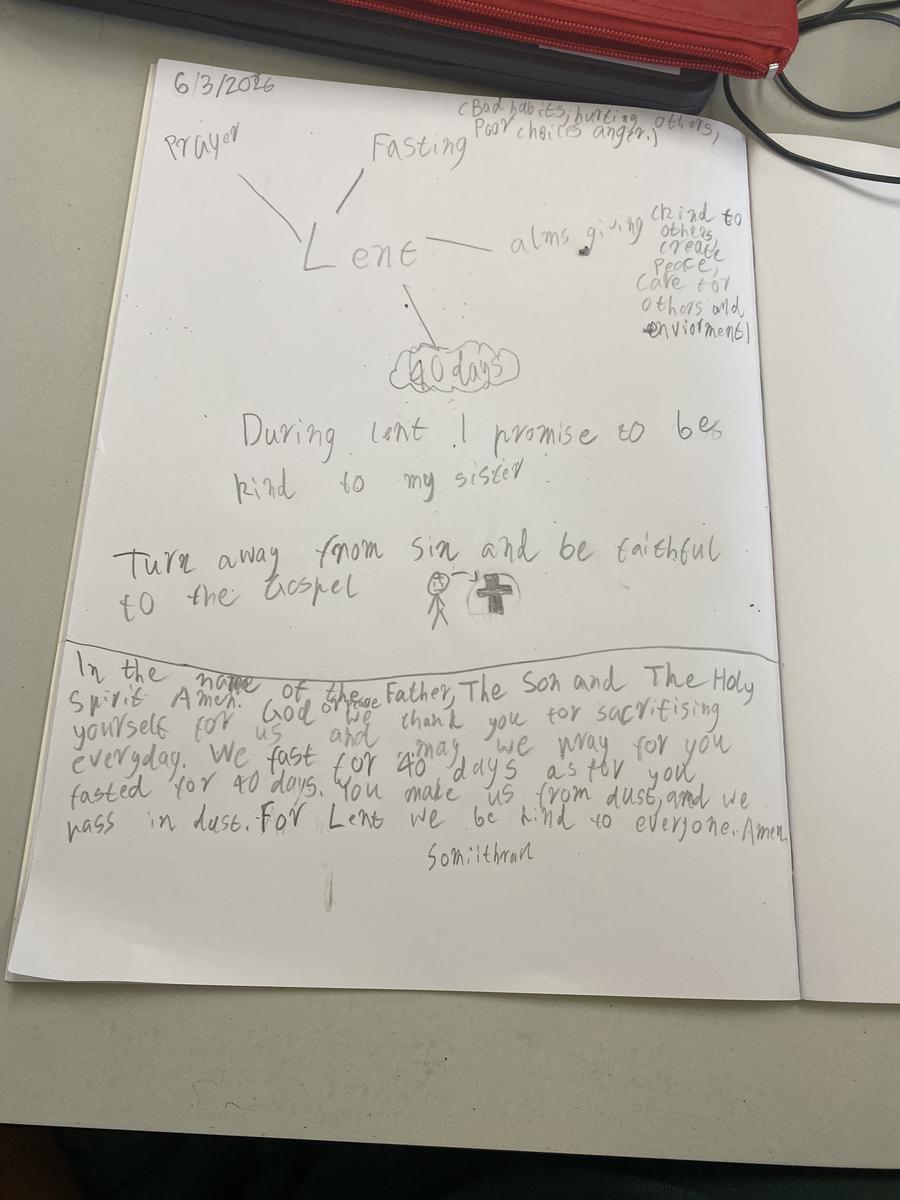 6/3/2026
(Bad habits, hurting others,
Prayer Fasting Poor choices anger.)
Lent
alms giving (kind to
others
create
Peace,
care for
others and
enviorment)
40 days
During lent I promise to be
kind to my sister
Turn away from sin and be faithful
to the Gospel
In the name of the Father, The Son and The Holy
Spirit Amen. God of peace we thank you for sacrifising
yourself for us and may we pray for you
everyday. We fast for 40 days as for you
fasted for 40 days. You make us from dust, and we
pass in dust. For Lent we be kind to everyone. Amen.